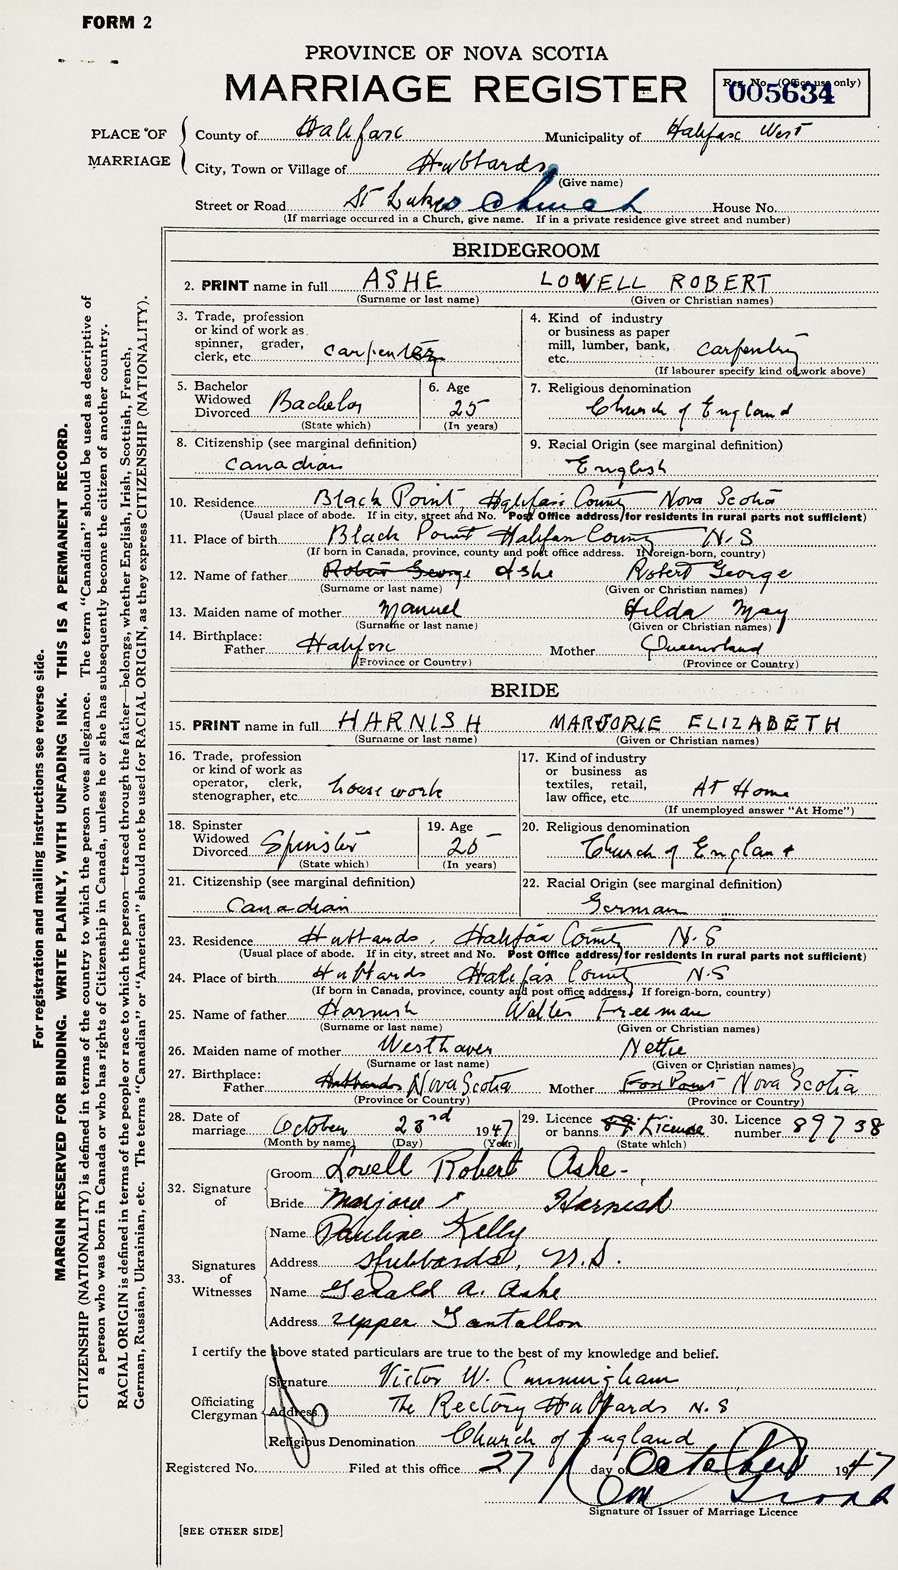 FORM 2
PROVINCE OF NOVA SCOTIA
MARRIAGE REGISTER
Reg. No. (Office use only)
005634
PLACE OF MARRIAGE
County of Halifax Municipality of Halifax West
City, Town or Village of Hubbards
(Give name)
Street or Road St Lukes Church House No.
(If marriage occurred in a Church, give name. If in a private residence give street and number)
BRIDEGROOM
2. PRINT name in full ASHE LOWELL ROBERT
(Surname or last name) (Given or Christian names)
3. Trade, profession or kind of work as spinner, grader, clerk, etc. carpenter
4. Kind of industry or business as paper mill, lumber, bank, etc. carpentry
(If labourer specify kind of work above)
5. Bachelor Widowed Divorced Bachelor
(State which)
6. Age 25
(In years)
7. Religious denomination
Church of England
8. Citizenship (see marginal definition)
Canadian
9. Racial Origin (see marginal definition)
English
10. Residence Black Point, Halifax County Nova Scotia
(Usual place of abode. If in city, street and No. Post Office address for residents in rural parts not sufficient)
11. Place of birth Black Point Halifax County N.S
(If born in Canada, province, county and post office address. If foreign-born, country)
12. Name of father Robert George Ashe Robert George
(Surname or last name) (Given or Christian names)
13. Maiden name of mother Manuel Hilda May
(Surname or last name) (Given or Christian names)
14. Birthplace:
Father Halifax Mother Queensland
(Province or Country) (Province or Country)
BRIDE
15. PRINT name in full HARNISH MARJORIE ELIZABETH
(Surname or last name) (Given or Christian names)
16. Trade, profession or kind of work as operator, clerk, stenographer, etc. house work
17. Kind of industry or business as textiles, retail, law office, etc. At Home
(If unemployed answer "At Home")
18. Spinster Widowed Divorced Spinster
(State which)
19. Age 25
(In years)
20. Religious denomination
Church of England
21. Citizenship (see marginal definition)
Canadian
22. Racial Origin (see marginal definition)
German
23. Residence Hubbards, Halifax County N.S
(Usual place of abode. If in city, street and No. Post Office address for residents in rural parts not sufficient)
24. Place of birth Hubbards Halifax County N.S
(If born in Canada, province, county and post office address. If foreign-born, country)
25. Name of father Harnish Walter Freeman
(Surname or last name) (Given or Christian names)
26. Maiden name of mother Westhaver Nettie
(Surname or last name) (Given or Christian names)
27. Birthplace:
Father Hubbards Nova Scotia Mother Fox Point Nova Scotia
(Province or Country) (Province or Country)
28. Date of marriage October 23rd 1947
(Month by name) (Day) (Year)
29. Licence or banns License
(State which)
30. Licence number 89738
32. Signature of
Groom Lovell Robert Ashe
Bride Marjorie E Harnish
33. Signatures of Witnesses
Name Pauline Kelly
Address Hubbards, N.S.
Name Gerald A. Ashe
Address Upper Tantallon
I certify the above stated particulars are true to the best of my knowledge and belief.
Officiating Clergyman
Signature Victor W. Cunningham
Address The Rectory Hubbards N.S
Religious Denomination Church of England
Registered No. Filed at this office 27 day of October 1947
Signature of Issuer of Marriage Licence
[SEE OTHER SIDE]
For registration and mailing instructions see reverse side.
MARGIN RESERVED FOR BINDING. WRITE PLAINLY, WITH UNFADING INK. THIS IS A PERMANENT RECORD.
CITIZENSHIP (NATIONALITY) is defined in terms of the country to which the person owes allegiance. The term "Canadian" should be used as descriptive of
a person who was born in Canada or who has rights of Citizenship in Canada, unless he or she has subsequently become the citizen of another country.
RACIAL ORIGIN is defined in terms of the people or race to which the person—traced through the father—belongs, whether English, Irish, Scottish, French,
German, Russian, Ukrainian, etc. The terms "Canadian" or "American" should not be used for RACIAL ORIGIN, as they express CITIZENSHIP (NATIONALITY).